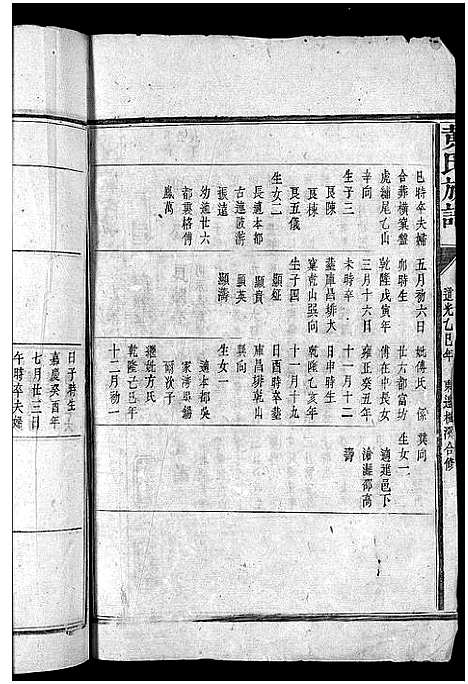 黄氏族譜
道光乙巳年
東遷桂溪合修
巳時卒夫婦
合葬橫窠盤
虎細尾乙山
辛向
生子三
艮陳
艮棟
艮五儀
生女二
長適本都
古連陂游
振遠
幼適廿六
都襄格傅
鳳萬
五月初六日
卯時生
乾隆戊寅年
三月十六日
未時卒
葬庫昌排大
窠乾山巽向
生子四
顯紅
顯貴
顯英
顯濤
娩傅氏係
廿六都富坊
傅在中長女
雍正癸丑年
十一月十二
日申時生
乾隆乙亥年
十一月十九
日酉時卒葬
庫昌排乾山
巽向
生女一
適本都吳
家灣吳錫
爾次子
繼娩方氏
乾隆己巳年
十二月初一
巽向
生女一
適進邑下
滄湖鄒高
壽
日子時生
嘉慶癸酉年
七月廿三日
午時卒夫婦